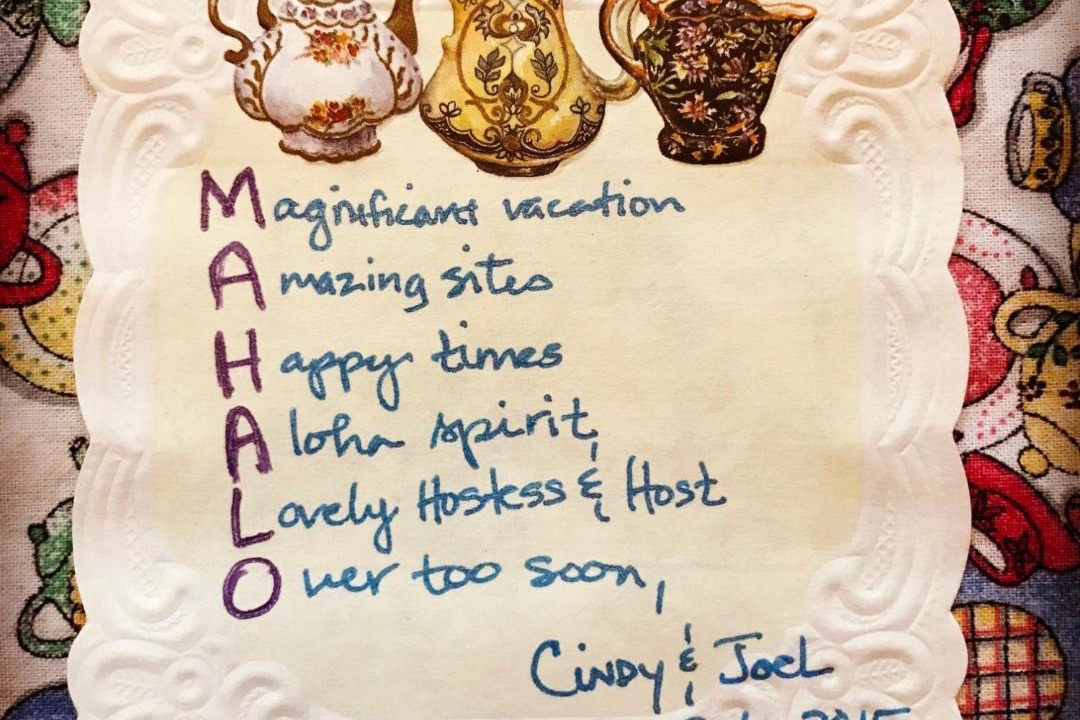 Magnificant vacation
Amazing sites
Happy times
Aloha spirit
Lovely Hostess & Host
Over too soon,
Cindy & Joel
2015